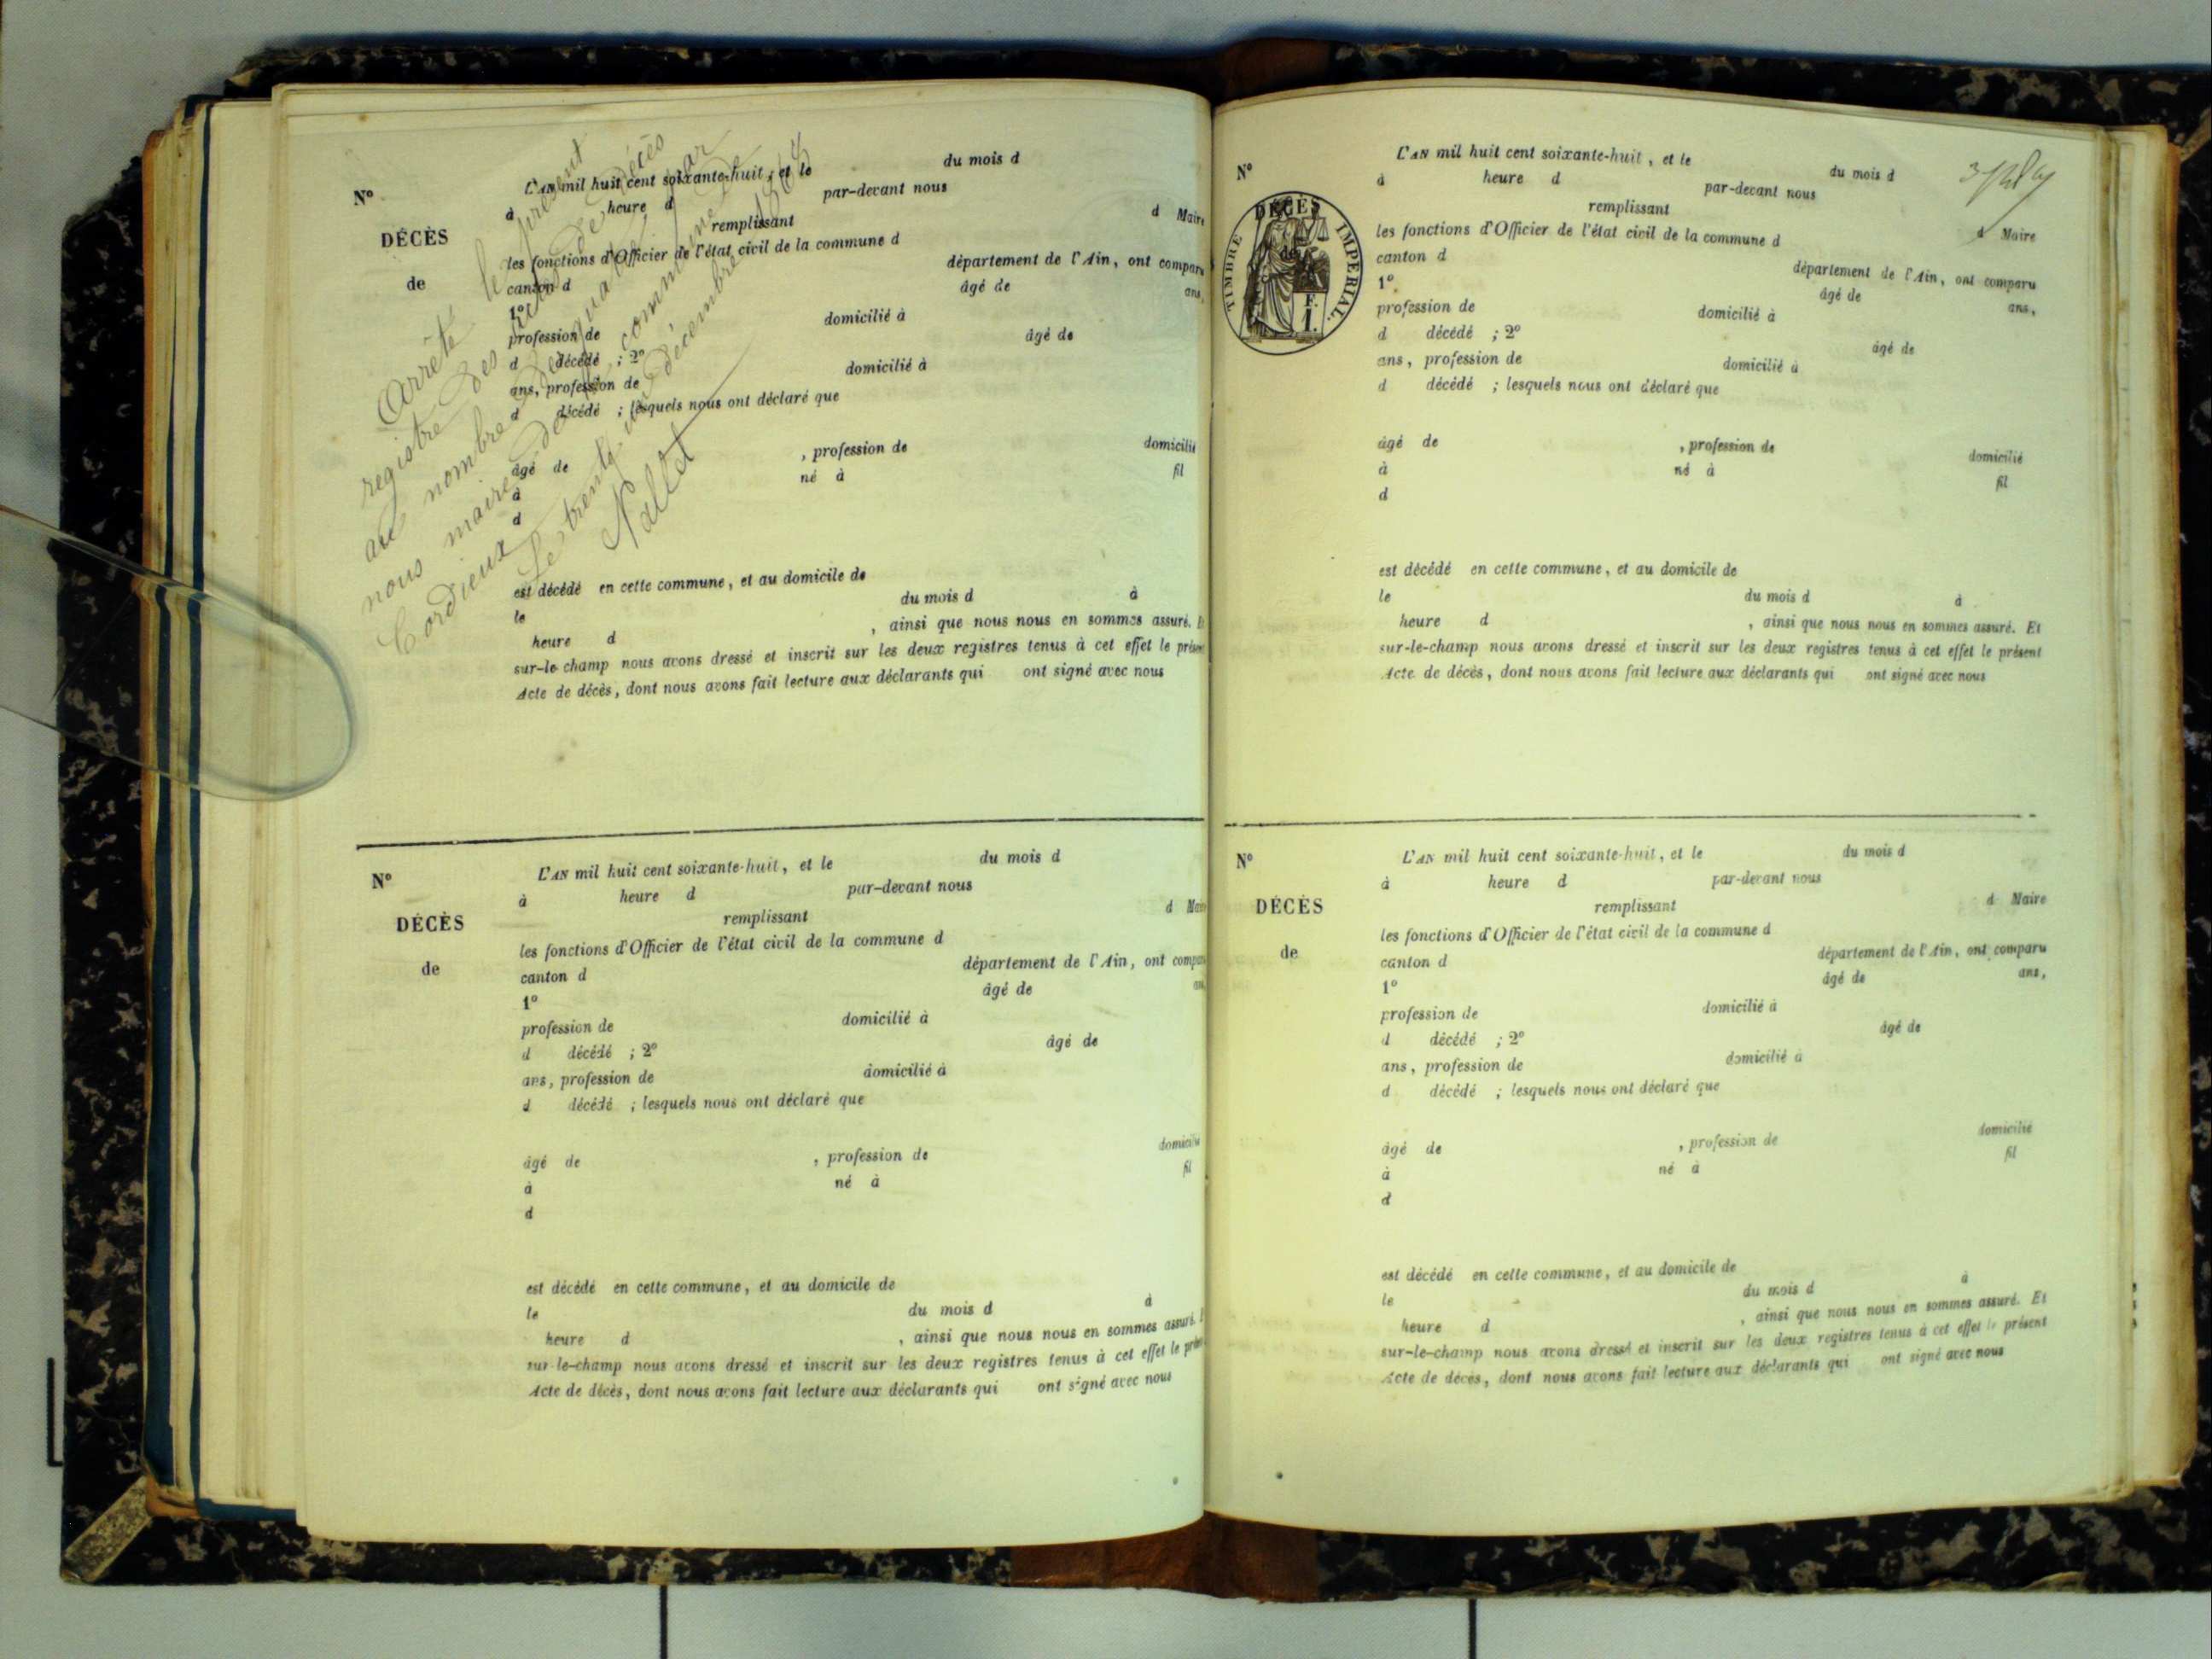 Nº
DÉCÈS
de
L'AN mil huit cent soixante-huit, et le du mois d
à heure d par-devant nous
remplissant d Maire
les fonctions d'Officier de l'état civil de la commune d
canton d département de l'Ain, ont comparu
1º âgé de ans,
profession de domicilié à
d décédé ; 2º âgé de
ans, profession de domicilié à
d décédé ; lesquels nous ont déclaré que
âgé de , profession de domicilié
à né à fil
d
est décédé en cette commune, et au domicile de
le du mois d à
heure d , ainsi que nous nous en sommes assuré. E
sur-le-champ nous avons dressé et inscrit sur les deux registres tenus à cet effet le présent
Acte de décès, dont nous avons fait lecture aux déclarants qui ont signé avec nous
Arrêté le présent
registre des décès
au nombre de par
nous maire de commune de
Cordieux
Le trente un décembre 1868
Nallet
Nº
DÉCÈS
de
L'AN mil huit cent soixante-huit, et le du mois d
à heure d par-devant nous
remplissant d Mai
les fonctions d'Officier de l'état civil de la commune d
canton d département de l'Ain, ont compar
1º âgé de an
profession de domicilié à
d décédé ; 2º âgé de
ans, profession de domicilié à
d décédé ; lesquels nous ont déclaré que
âgé de , profession de domicilié
à né à fil
d
est décédé en cette commune, et au domicile de
le du mois d à
heure d , ainsi que nous nous en sommes assuré.
sur-le-champ nous avons dressé et inscrit sur les deux registres tenus à cet effet le prése
Acte de décès, dont nous avons fait lecture aux déclarants qui ont signé avec nous
Nº
DÉCÈS
de
TIMBRE IMPÉRIAL.
F.
1.
L'AN mil huit cent soixante-huit, et le du mois d
à heure d par-devant nous
remplissant d Maire
les fonctions d'Officier de l'état civil de la commune d
canton d département de l'Ain, ont comparu
1º âgé de ans,
profession de domicilié à
d décédé ; 2º âgé de
ans, profession de domicilié à
d décédé ; lesquels nous ont déclaré que
âgé de , profession de domicilié
à né à fil
d
est décédé en cette commune, et au domicile de
le du mois d à
heure d , ainsi que nous nous en sommes assuré. Et
sur-le-champ nous avons dressé et inscrit sur les deux registres tenus à cet effet le présent
Acte de décès, dont nous avons fait lecture aux déclarants qui ont signé avec nous
Nº
DÉCÈS
de
L'AN mil huit cent soixante-huit, et le du mois d
à heure d par-devant nous
remplissant d Maire
les fonctions d'Officier de l'état civil de la commune d
canton d département de l'Ain, ont comparu
1º âgé de ans,
profession de domicilié à
d décédé ; 2º âgé de
ans, profession de domicilié à
d décédé ; lesquels nous ont déclaré que
âgé de , profession de domicilié
à né à fil
d
est décédé en cette commune, et au domicile de
le du mois d à
heure d , ainsi que nous nous en sommes assuré. Et
sur-le-champ nous avons dressé et inscrit sur les deux registres tenus à cet effet le présent
Acte de décès, dont nous avons fait lecture aux déclarants qui ont signé avec nous